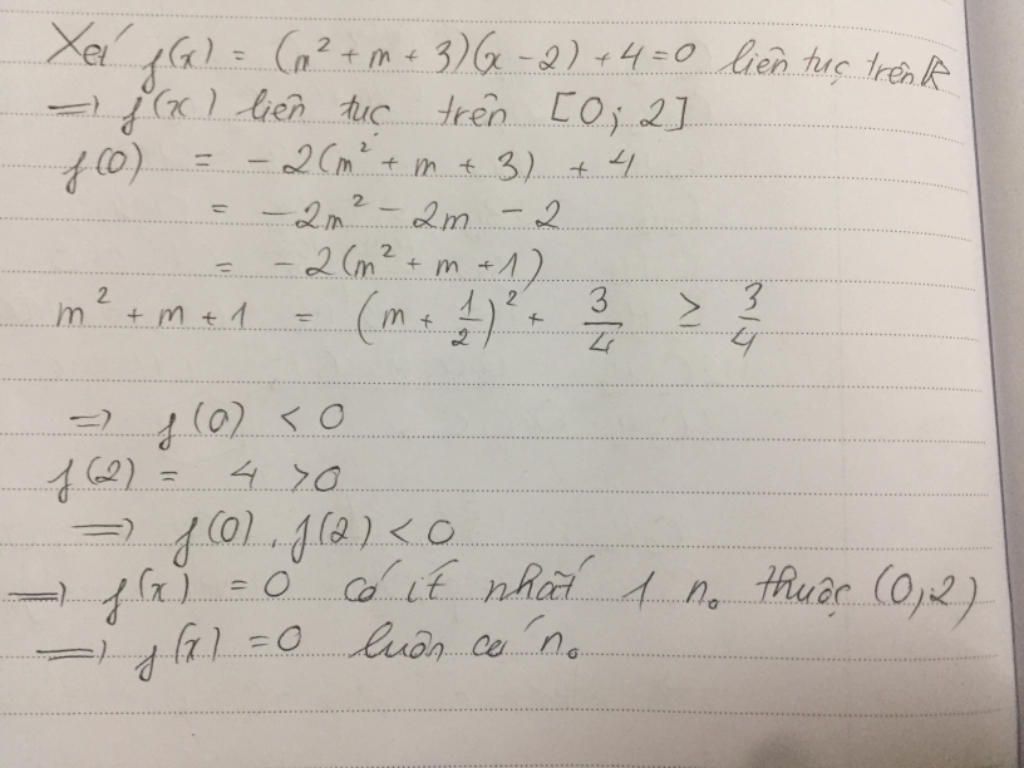 Xét f(x) = (m² + m + 3)(x - 2) + 4 = 0 liên tục trên ℝ
=> f(x) liên tục trên [0; 2]
f(0) = - 2(m² + m + 3) + 4
= - 2m² - 2m - 2
= - 2(m² + m + 1)
m² + m + 1 = (m + 1/2)² + 3/4 ≥ 3/4
=> f(0) < 0
f(2) = 4 > 0
=> f(0) . f(2) < 0
=> f(x) = 0 có ít nhất 1 n₀ thuộc (0; 2)
=> f(x) = 0 luôn có n₀